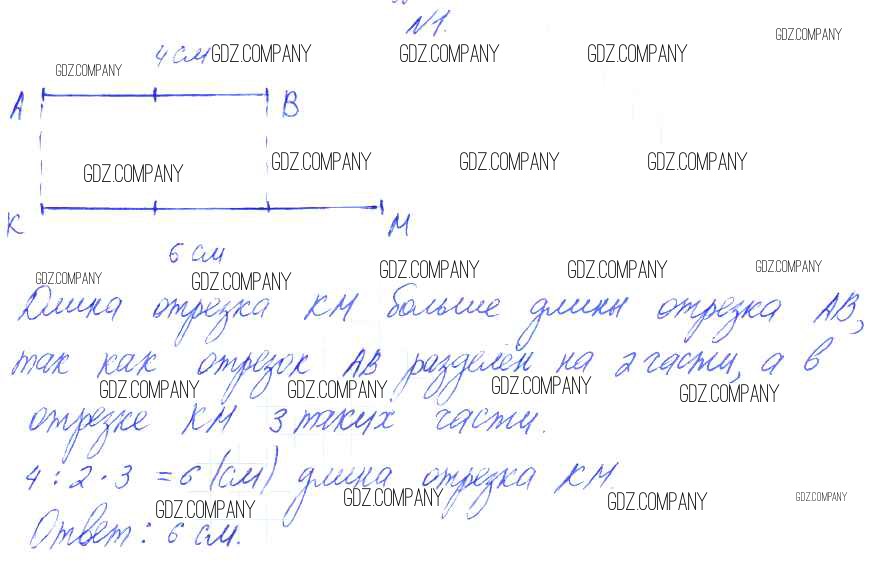 №1.
GDZ.COMPANY
4 см GDZ.COMPANY GDZ.COMPANY GDZ.COMPANY
GDZ.COMPANY
А В
GDZ.COMPANY GDZ.COMPANY GDZ.COMPANY GDZ.COMPANY
К М
6 см
GDZ.COMPANY GDZ.COMPANY GDZ.COMPANY GDZ.COMPANY GDZ.COMPANY
Длина отрезка КМ больше длины отрезка АВ,
так как отрезок АВ разделён на 2 части, а в
GDZ.COMPANY GDZ.COMPANY GDZ.COMPANY GDZ.COMPANY
отрезке КМ 3 таких части.
4 : 2 · 3 = 6 (см) длина отрезка КМ.
GDZ.COMPANY GDZ.COMPANY GDZ.COMPANY GDZ.COMPANY
Ответ: 6 см.